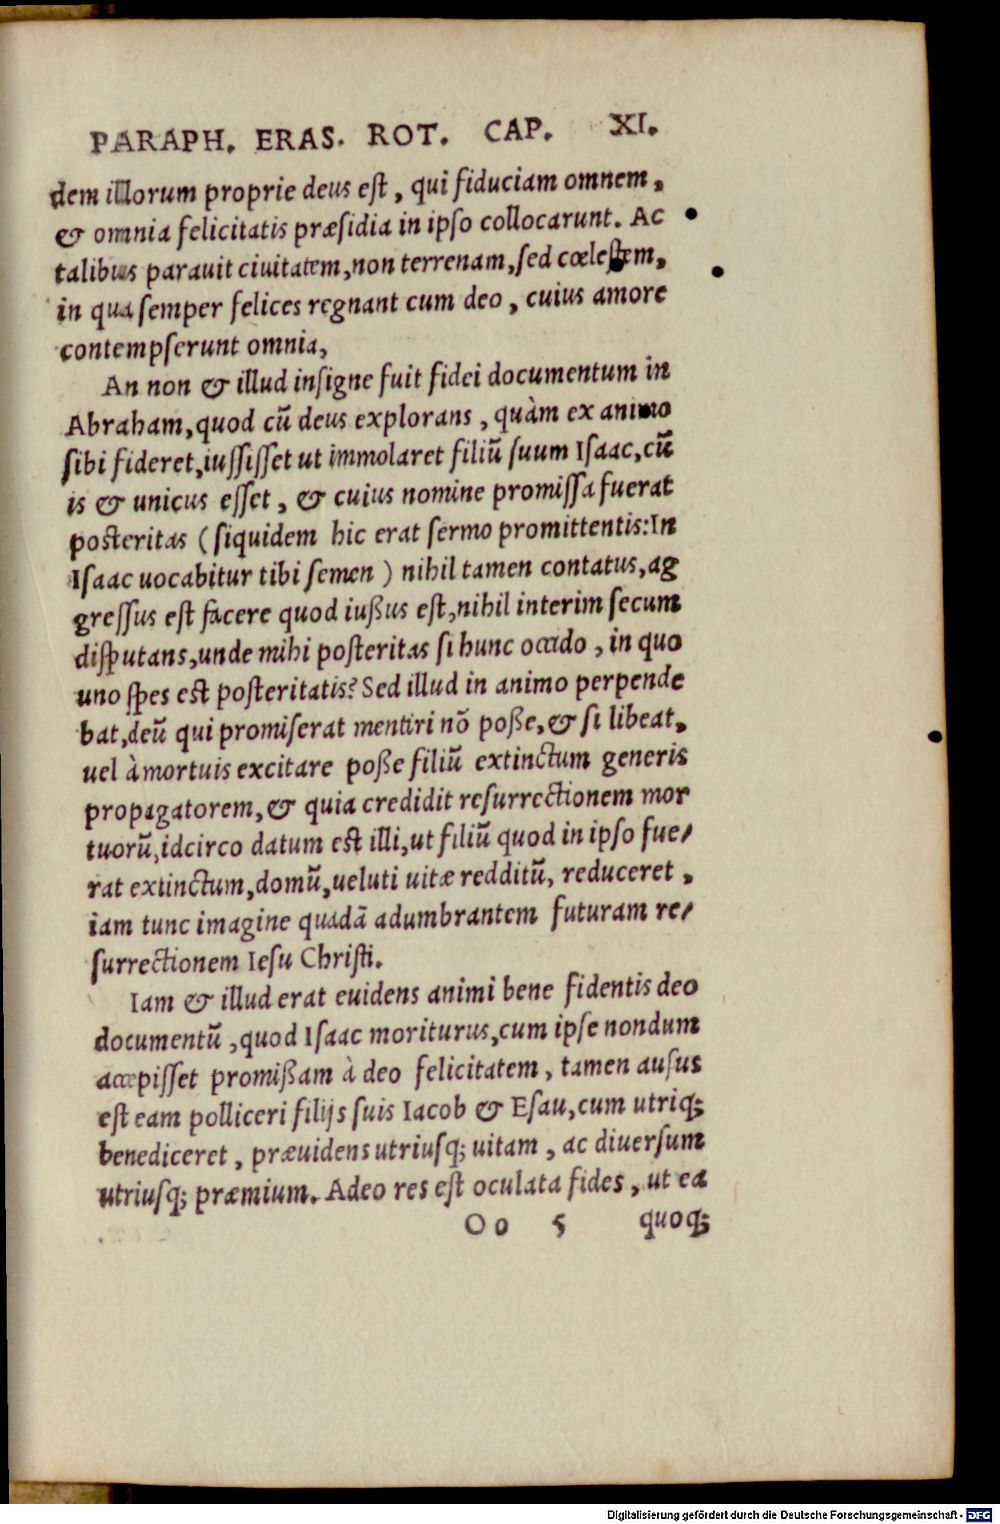 PARAPH. ERAS. ROT. CAP. XI.
dem illorum proprie deus eſt, qui fiduciam omnem,
& omnia felicitatis præſidia in ipſo collocarunt. Ac
talibus parauit ciuitatem, non terrenam, ſed cœleſtem,
in qua ſemper felices regnant cum deo, cuius amore
contempſerunt omnia,
An non & illud inſigne fuit fidei documentum in
Abraham, quod cũ deus explorans, quàm ex animo
ſibi fideret, iuſſiſſet ut immolaret filiũ ſuum Iſaac, cũ
is & unicus eſſet, & cuius nomine promiſſa fuerat
posteritas (ſiquidem hic erat ſermo promittentis: In
Iſaac uocabitur tibi ſemen) nihil tamen contatus, ag
greſſus eſt facere quod iußus eſt, nihil interim ſecum
diſputans, unde mihi poſteritas ſi hunc occido, in quo
uno ſpes est poſteritatis? Sed illud in animo perpende
bat, deũ qui promiſerat mentiri nõ poße, & ſi libeat,
uel à mortuis excitare poße filiũ extinctum generis
propagatorem, & quia credidit reſurrectionem mor
tuorũ, idcirco datum est illi, ut filiũ quod in ipſo fue/
rat extinctum, domũ, ueluti uitæ redditũ, reduceret,
iam tunc imagine quadã adumbrantem futuram re/
ſurrectionem Ieſu Chriſti.
Iam & illud erat euidens animi bene fidentis deo
documentũ, quod Iſaac moriturus, cum ipſe nondum
accepiſſet promißam à deo felicitatem, tamen auſus
eſt eam polliceri filijs ſuis Iacob & Eſau, cum utriq;
benediceret, præuidens utriuſq; uitam, ac diuerſum
utriuſq; præmium. Adeo res eſt oculata fides, ut ea
Oo 5 quoq;
Digitalisierung gefördert durch die Deutsche Forschungsgemeinschaft - DFG